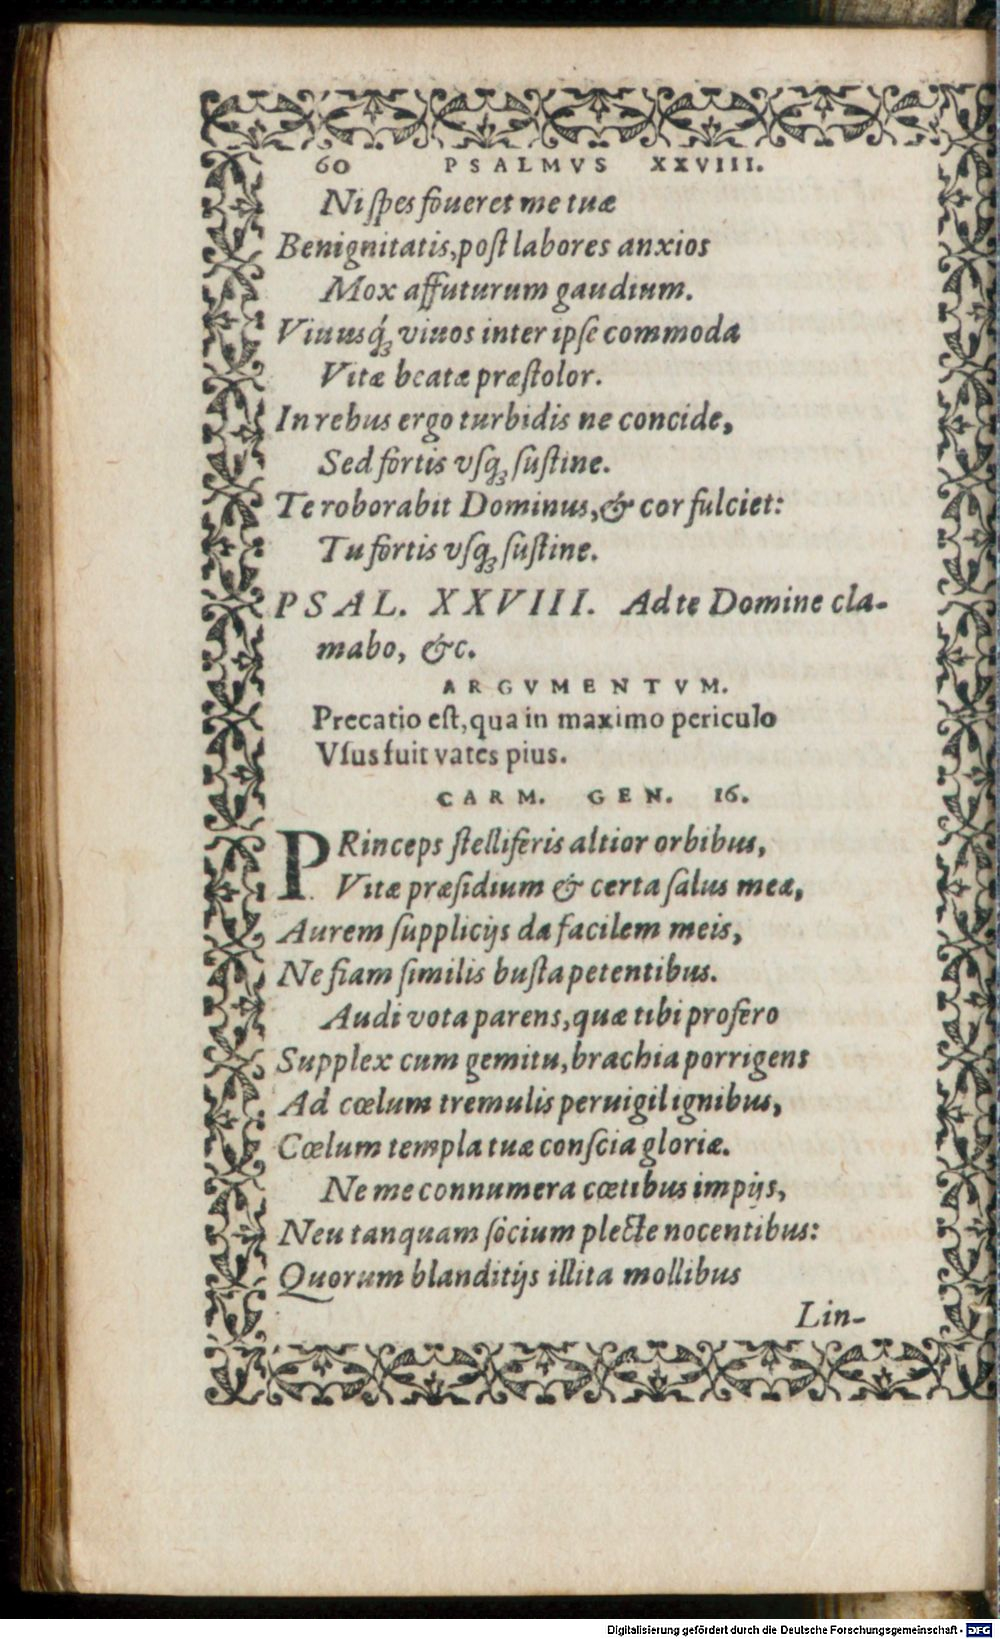 60 PSALMVS XXVIII.
Ni ſpes foueret me tuæ
Benignitatis, poſt labores anxios
Mox affuturum gaudium.
Viuusq́ꝫ viuos inter ipſe commoda
Vitæ beatæ præſtolor.
In rebus ergo turbidis ne concide,
Sed fortis vſqꝫ ſuſtine.
Te roborabit Dominus, & cor fulciet:
Tu fortis vſqꝫ ſuſtine.
PSAL. XXVIII. Ad te Domine cla-
mabo, &c.
ARGVMENTVM.
Precatio eſt, qua in maximo periculo
Vſus fuit vates pius.
CARM. GEN. 16.
PRinceps ſtelliferis altior orbibus,
Vitæ præſidium & certa ſalus meæ,
Aurem ſupplicijs da facilem meis,
Ne fiam ſimilis buſta petentibus.
Audi vota parens, quæ tibi profero
Supplex cum gemitu, brachia porrigens
Ad cœlum tremulis peruigil ignibus,
Cœlum templa tuæ conſcia gloriæ.
Ne me connumera cœtibus impijs,
Neu tanquam ſocium plecte nocentibus:
Quorum blanditijs illita mollibus
Lin-
Digitalisierung gefördert durch die Deutsche Forschungsgemeinschaft - DFG